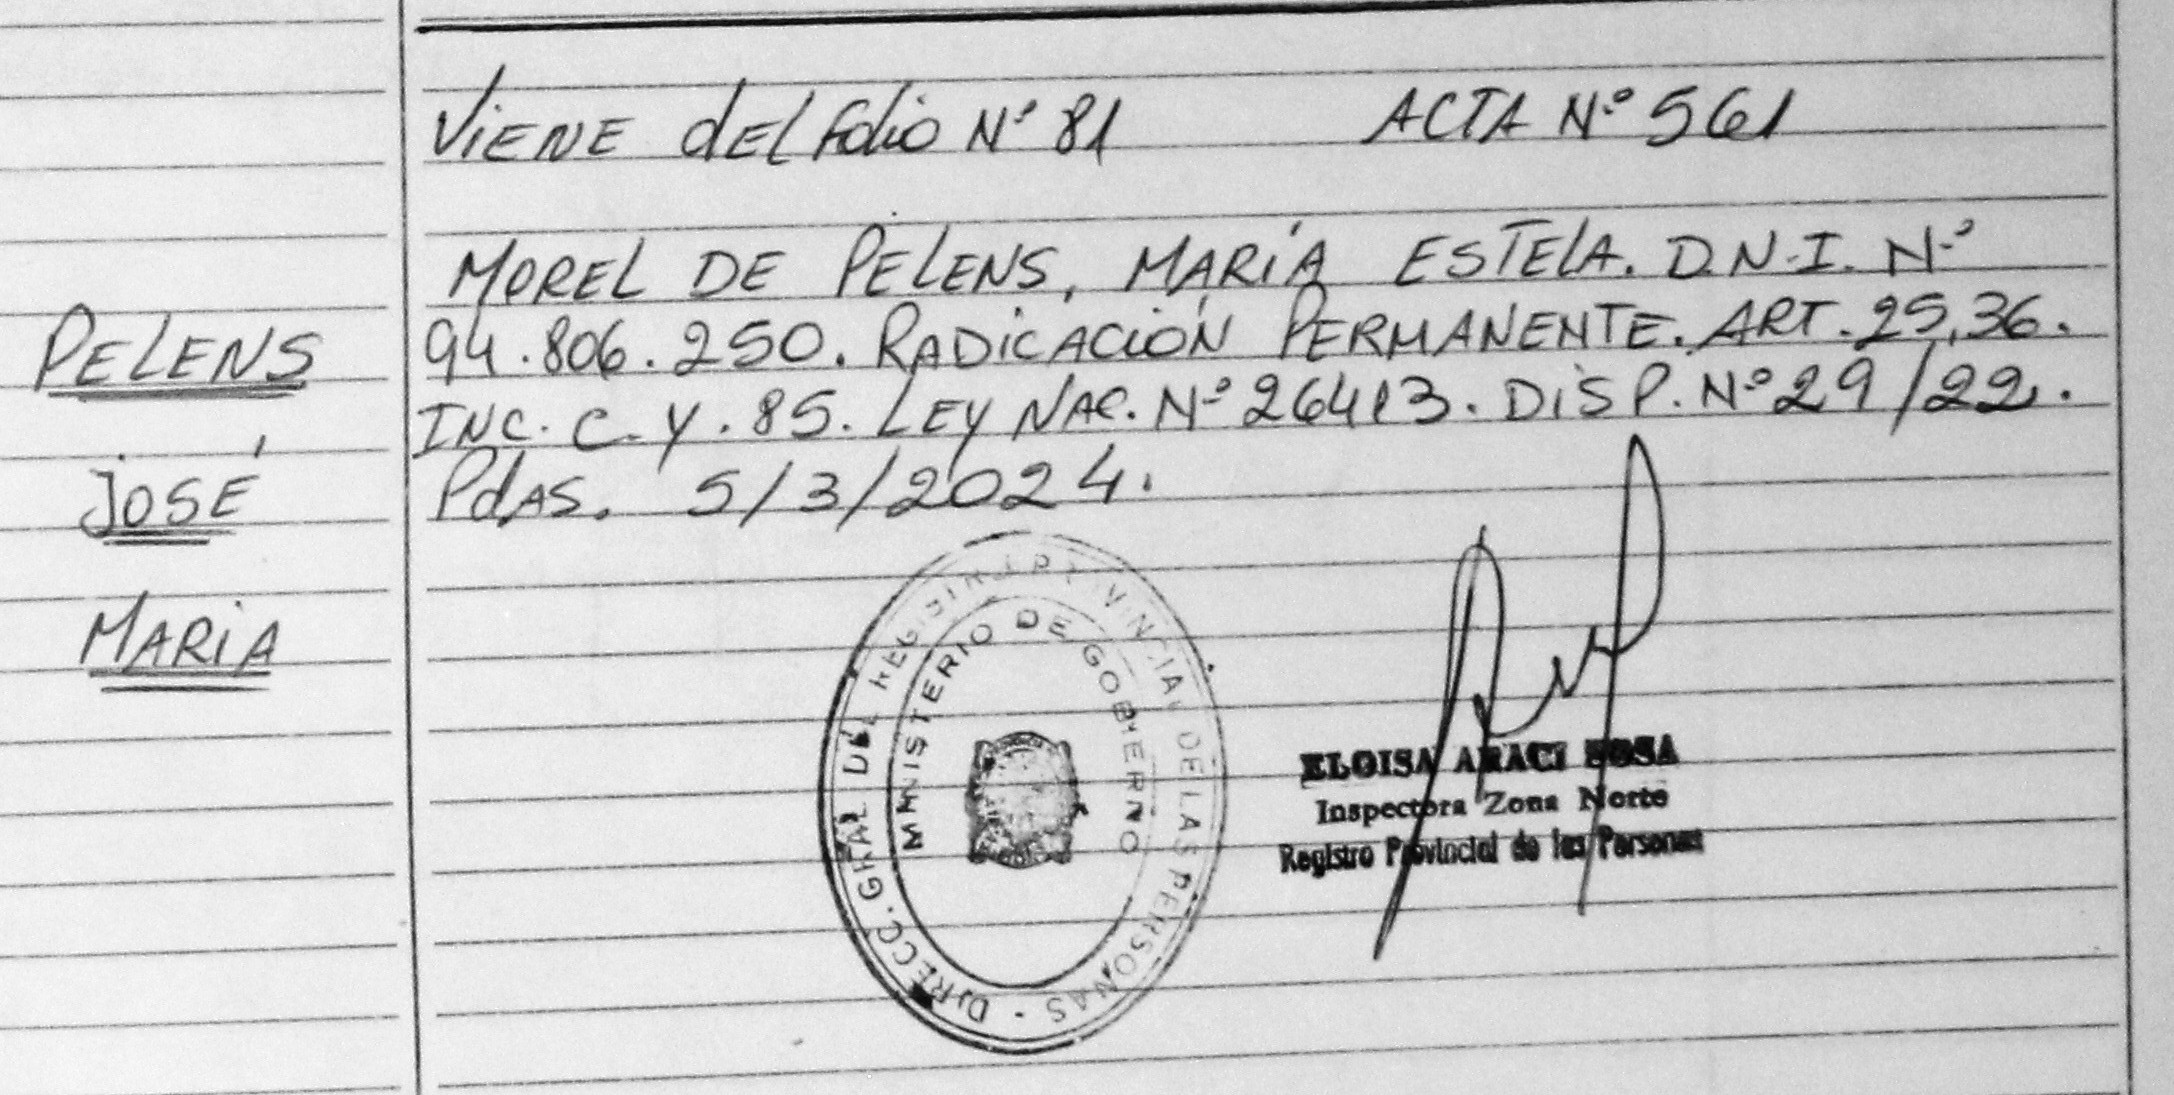 Viene del folio Nº 81 ACTA Nº 561
MOREL DE PELENS, MARÍA ESTELA. D.N.I. Nº
94.806.250. RADICACIÓN PERMANENTE. ART. 25,36.
INC. C. Y. 85. LEY NAC. Nº 26413. DISP. Nº 29/22.
Pdas. 5/3/2024.
PELENS
JOSÉ
MARIA
DIRECC. GRAL DEL REGISTRO PROVINCIAL DE LAS PERSONAS -
MINISTERIO DE GOBIERNO
ELOISA ARACI SOSA
Inspectora Zona Norte
Registro Provincial de las Personas